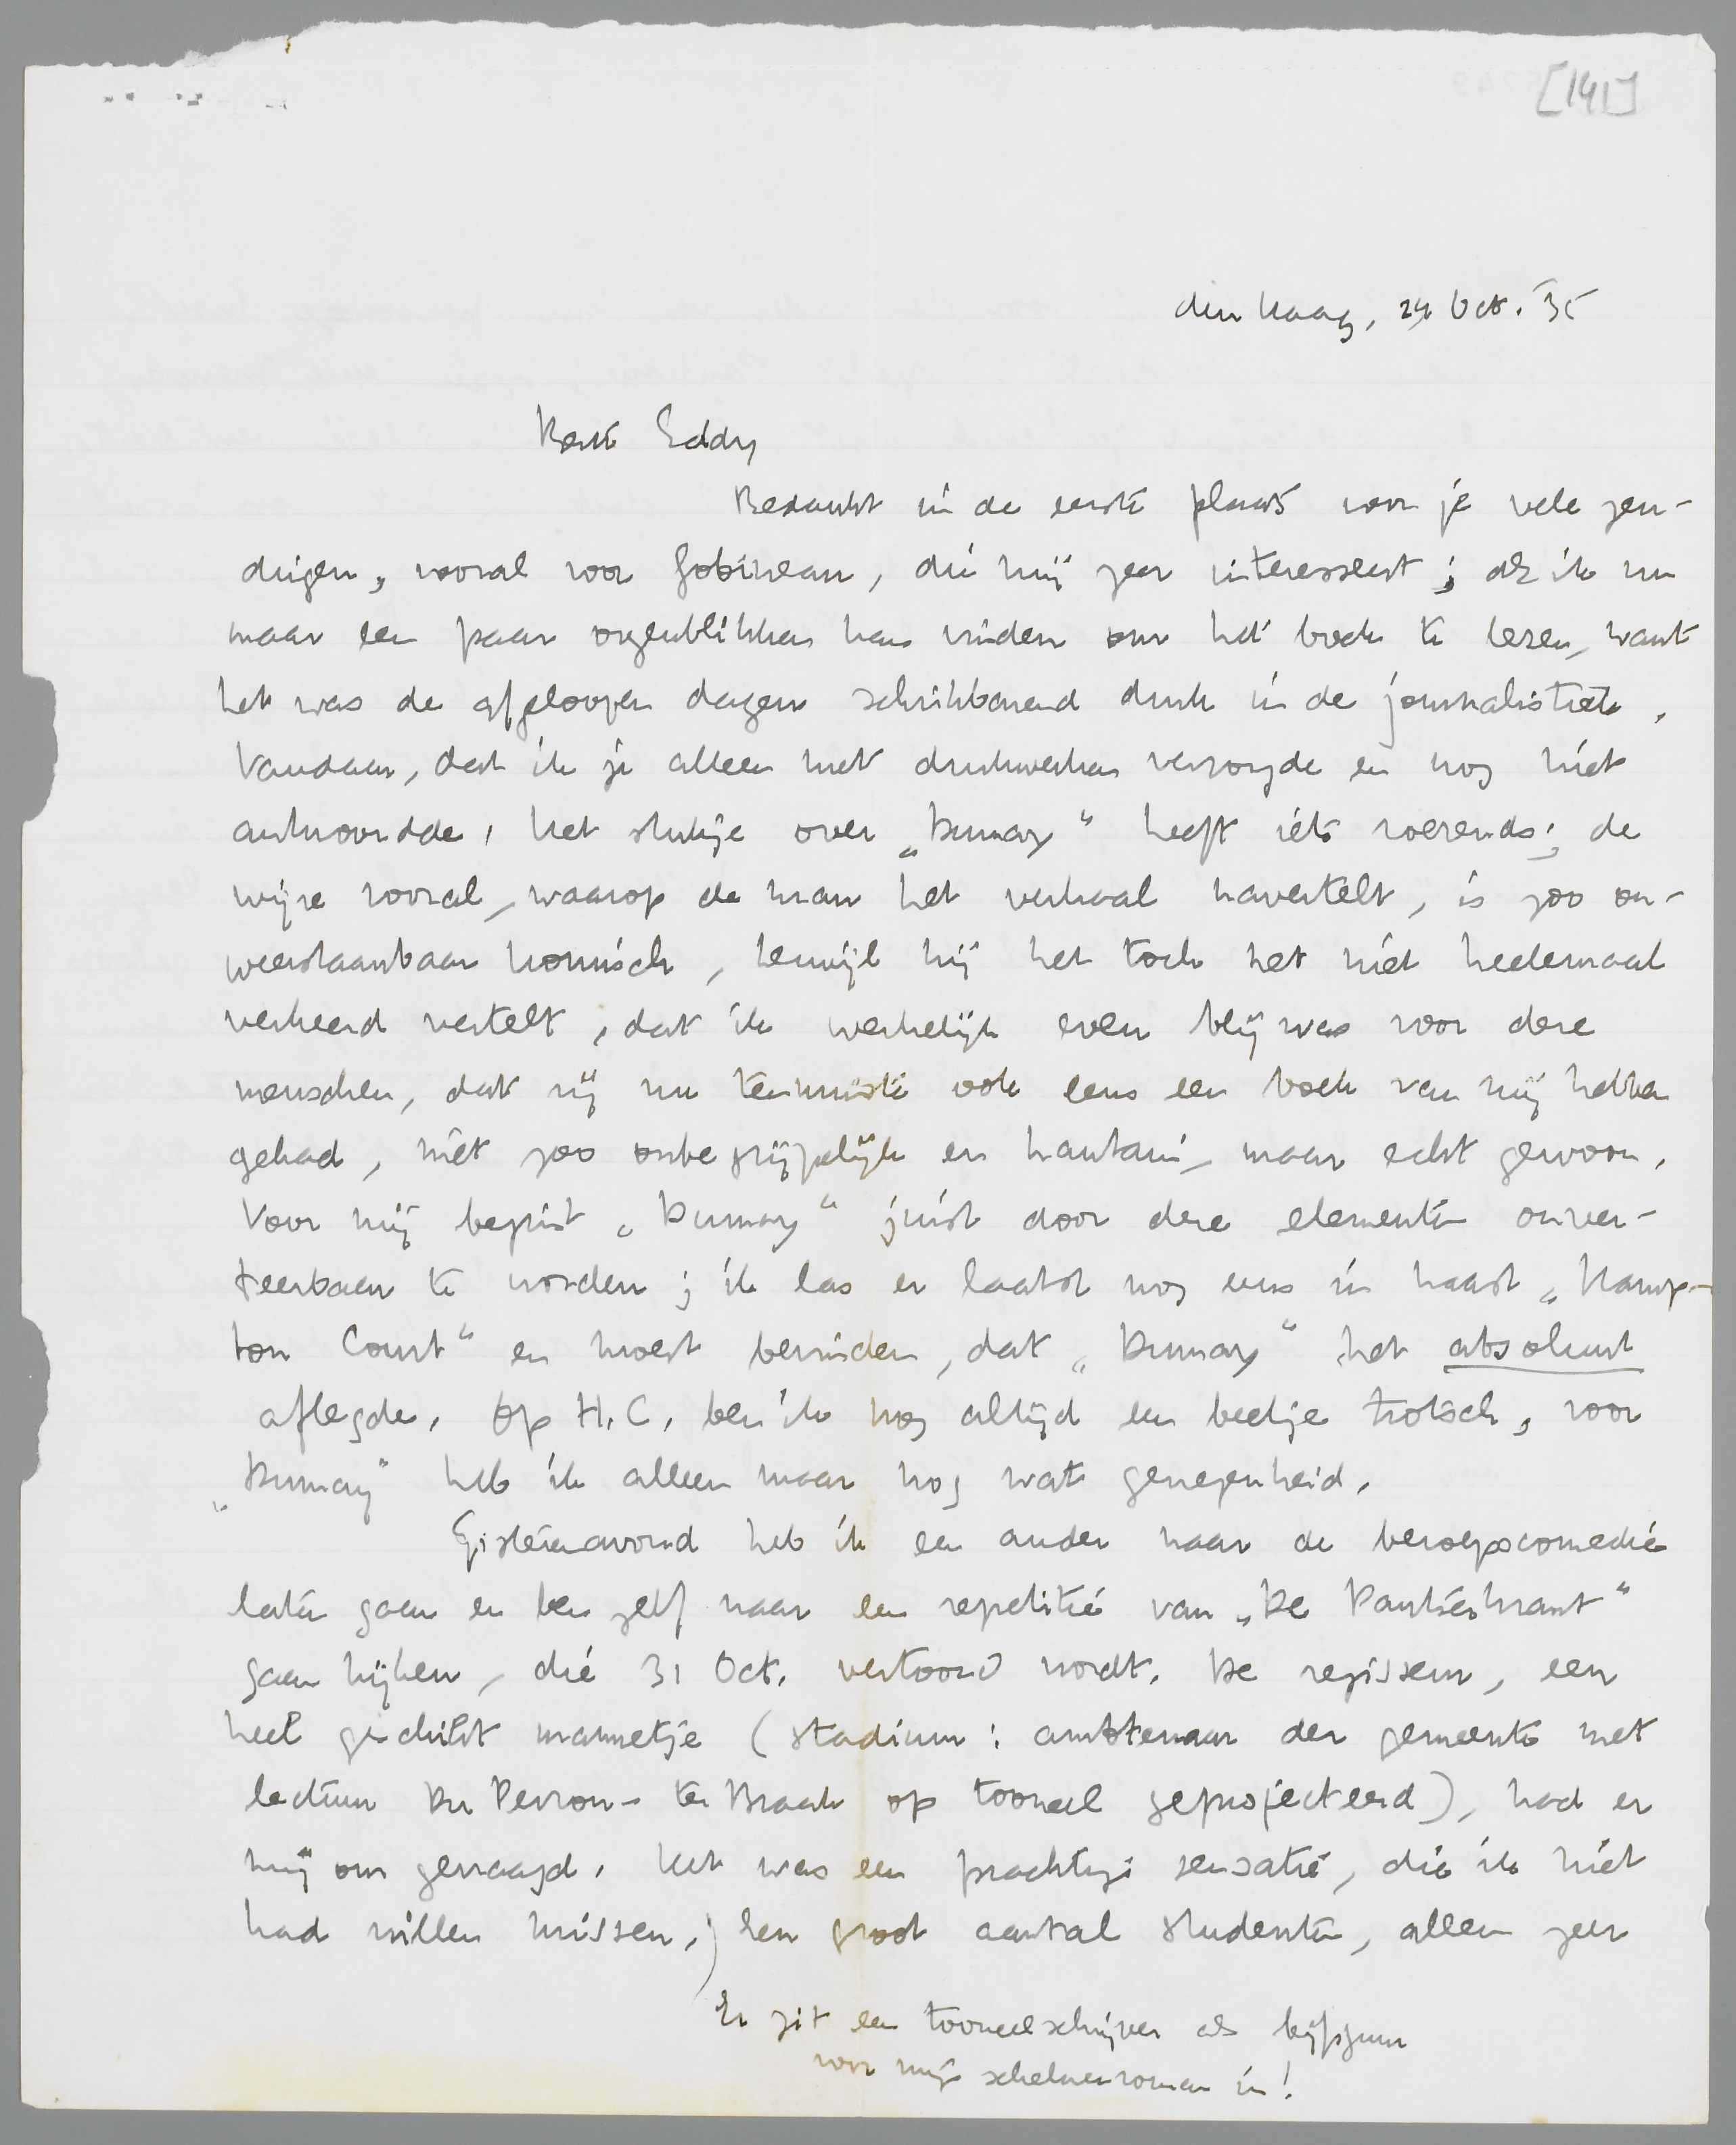 [141]
den Haag, 24 Oct. '35
Beste Eddy
Bedankt in de eerste plaats voor je vele zen-
dingen, vooral voor Gobineau, die mij zeer interesseert; als ik nu
maar een paar oogenblikken kan vinden om het boek te lezen, want
het was de afgeloopen dagen schrikbarend druk in de journalistiek.
Vandaar, dat ik je alleen met drukwerken verzorgde en nog niet
antwoordde. Het stukje over „Dumay" heeft iets roerends; de
wijze vooral, waarop de man het verhaal navertelt, is zoo on-
weerstaanbaar komisch, terwijl hij het toch het niet heelemaal
verkeerd vertelt, dat ik werkelijk even blij was voor deze
menschen, dat zij nu tenminste ook eens een boek van mij hebben
gehad, niet zoo onbegrijpelijk en hautain, maar echt gewoon.
Voor mij begint „Dumay" juist door deze elementen onver-
teerbaar te worden; ik las er laatst nog eens in naast „Hamp-
ton Court" en moest bevinden, dat „Dumay" het absoluut
aflegde. Op H.C. ben ik nog altijd een beetje trotsch, voor
„Dumay" heb ik alleen maar nog wat genegenheid.
Gisterenavond heb ik een ander naar de beroepscomedie
laten gaan en ben zelf naar een repetitie van „De Pantserkrant"
gaan kijken, die 31 Oct. vertoond wordt. De regisseur, een
heel geschikt mannetje (stadium: ambtenaar der gemeente met
lectuur Du Perron-ter Braak op tooneel geprojecteerd), had er
mij om gevraagd. Het was een prachtige sensatie, die ik niet
had willen missen.) Een groot aantal studenten, allen zeer
Er zit een tooneelschrijver als bijfiguur
voor mijn schelmenroman in!